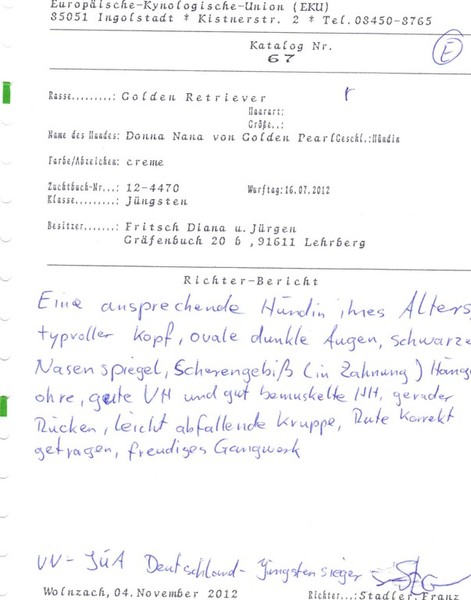 Europäische-Kynologische-Union (EKU)
85051 Ingolstadt * Kistnerstr. 2 * Tel. 08450-8765
Katalog Nr.
67
E
Rasse.........: Golden Retriever
Haarart:
Größe..:
Name des Hundes: Donna Nana von Golden Pearl Geschl.:Hündin
Farbe/Abzeichen: creme
Zuchtbuch-Nr...: 12-4470 Wurftag:16.07.2012
Klasse.........: Jüngsten
Besitzer.......: Fritsch Diana u. Jürgen
Gräfenbuch 20 b ,91611 Lehrberg
Richter-Bericht
Eine ansprechende Hündin ihres Alters,
typvoller Kopf, ovale dunkle Augen, schwarze
Nasenspiegel, Scherengebiß (in Zahnung) Hänge
ohre, gute VH und gut bemuskelte HH, gerader
Rücken, leicht abfallende Kruppe, Rute korrekt
getragen, freudiges Gangwerk
VV - JüA Deutschland-Jüngstensieger
Wolnzach, 04. November 2012 Richter...: Stadler, Franz